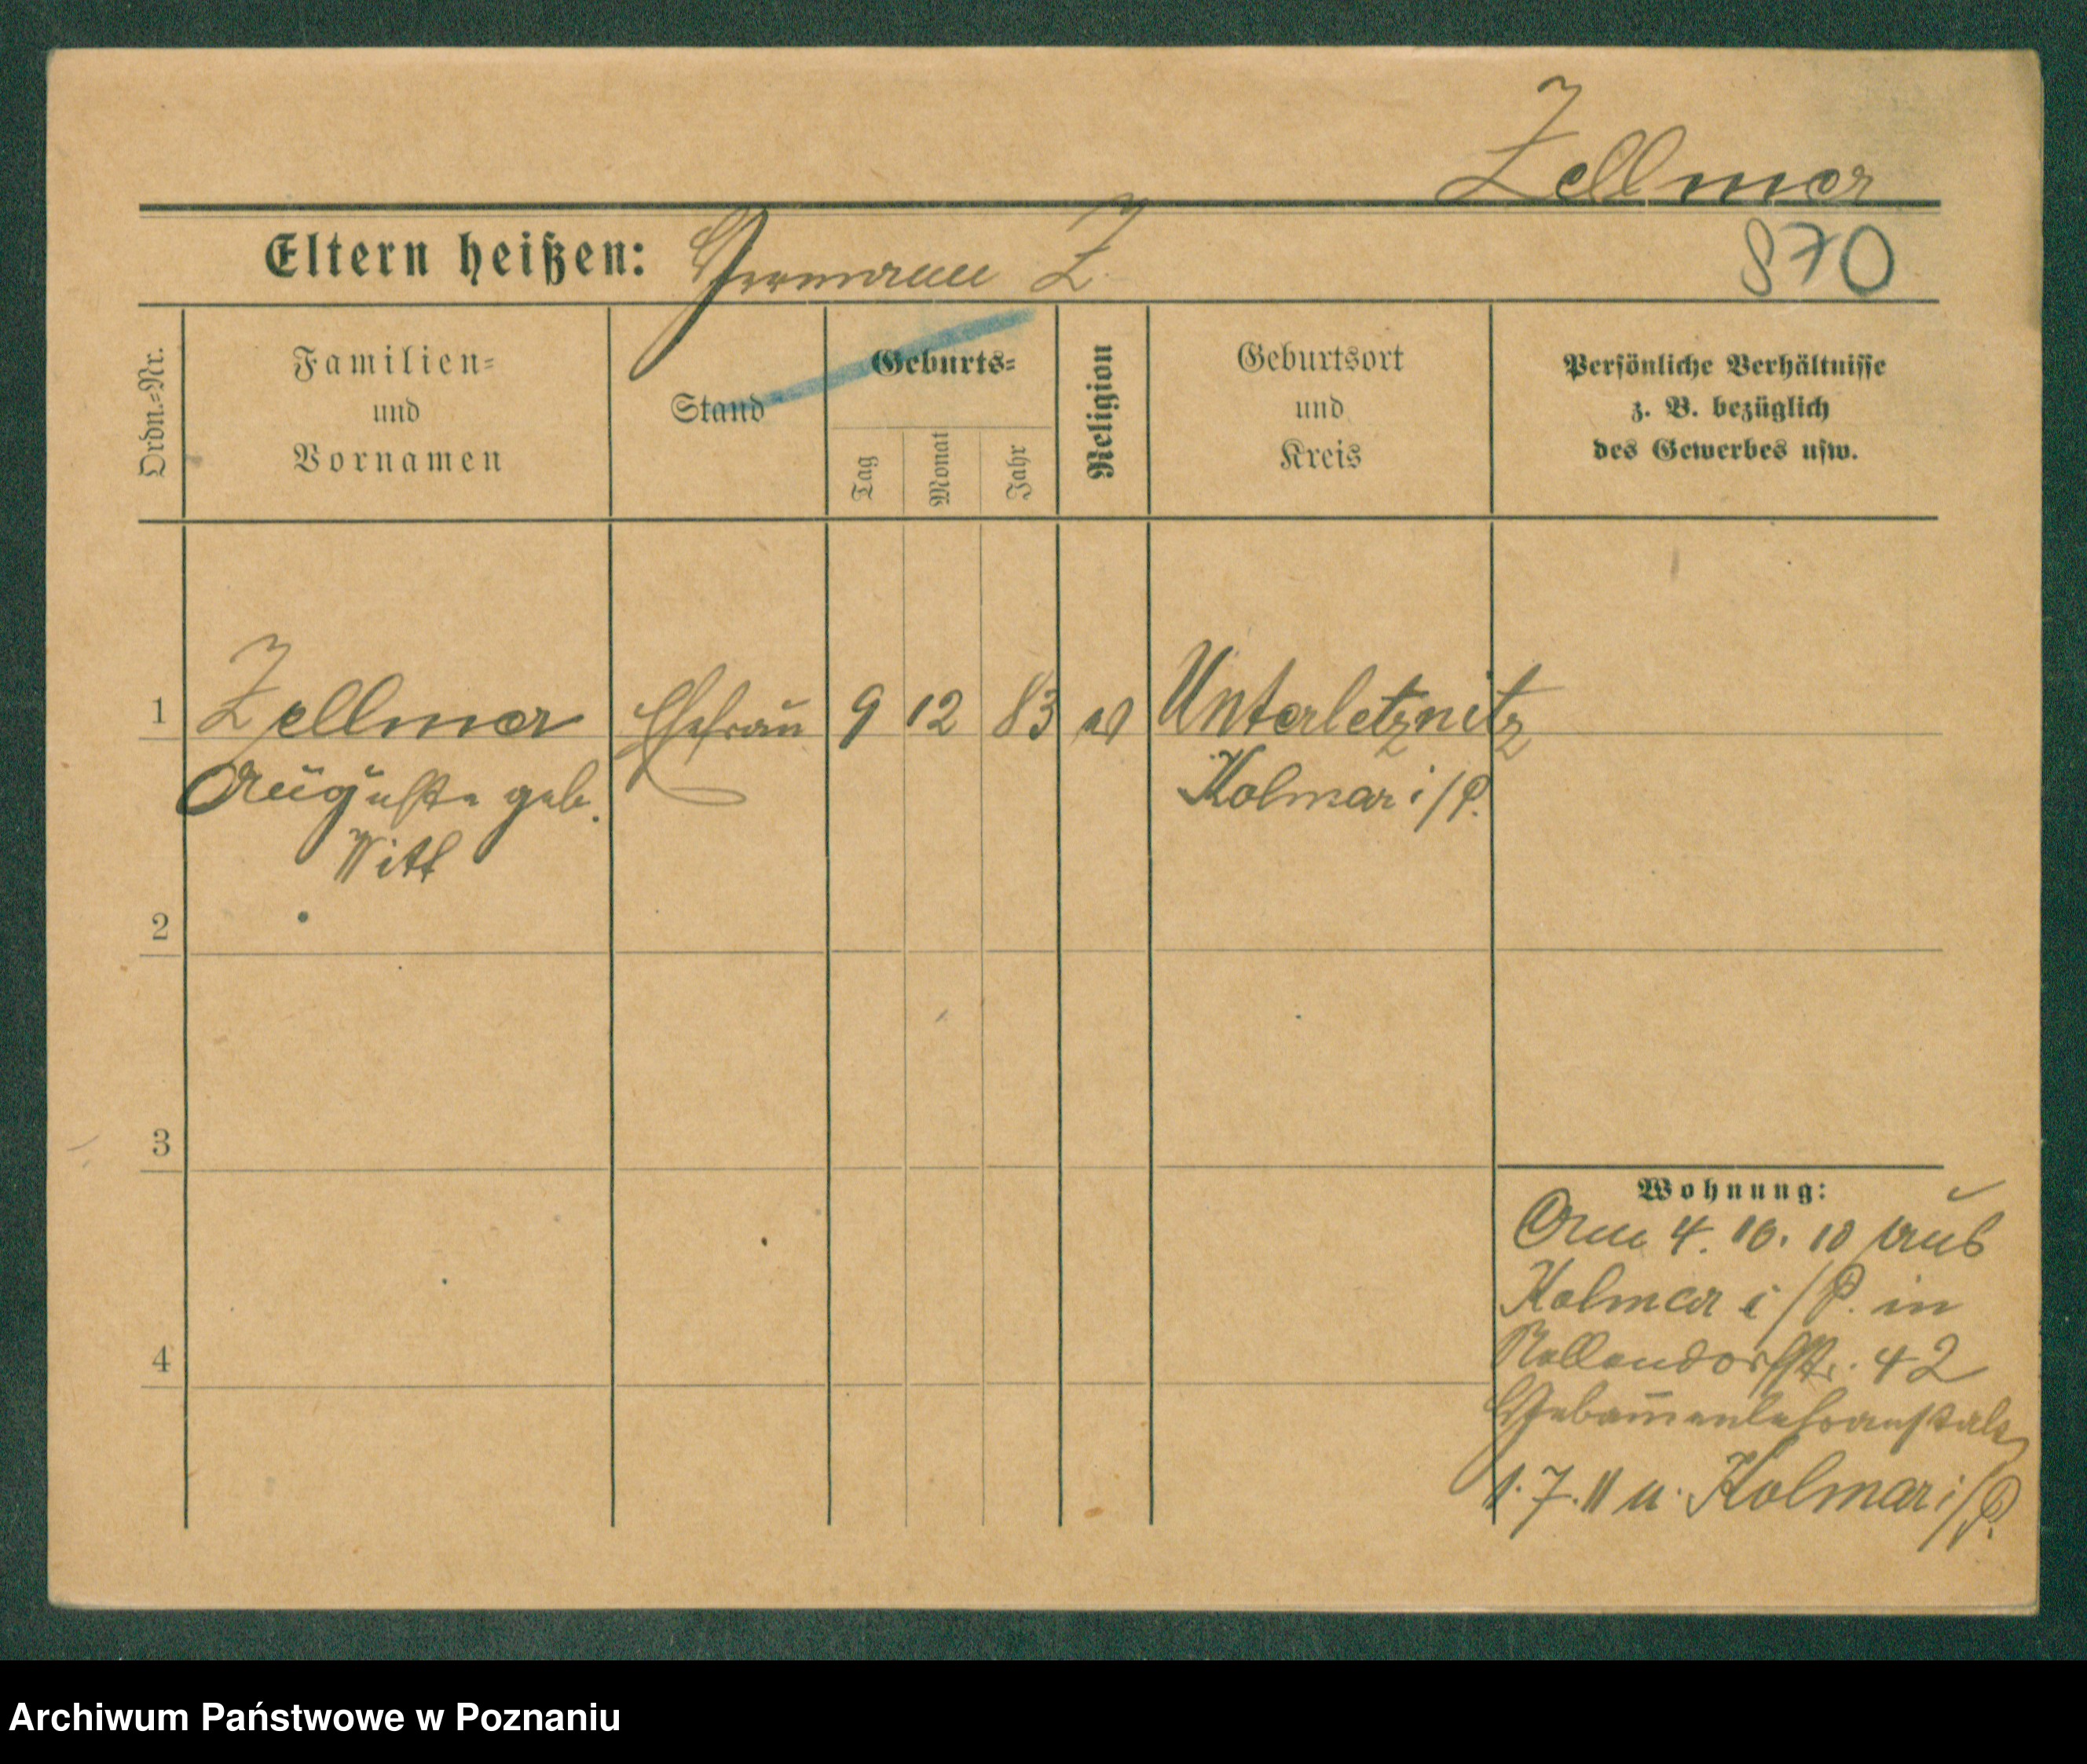 Zellmer
Eltern heißen: Hermann Z.
870
Ordn.=Nr.
Familien=
und
Vornamen
Stand
Geburts=
Tag
Monat
Jahr
Religion
Geburtsort
und
Kreis
Persönliche Verhältnisse
z. B. bezüglich
des Gewerbes usw.
1 Zellmer Ehefrau 9 12 83 ev Unterletznitz
Auguste geb. Kolmar i/P.
Witt
2
3
4
Wohnung:
Am 4. 10. 10 aus
Kolmar i/P. in
Nollendorfstr. 42
Hebammenlehranstalt
1. 7. 11 n. Kolmar i/P.
Archiwum Państwowe w Poznaniu